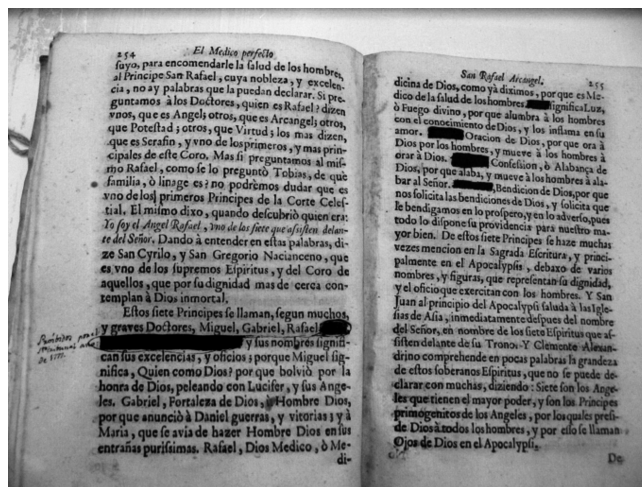 254 El Medico perfecto
suyo, para encomendarle la salud de los hombres,
al Principe San Rafael, cuya nobleza, y excelen-
cia, no ay palabras que la puedan declarar. Si pre-
guntamos à los Doctores, quien es Rafael? dizen
vnos, que es Angel; otros, que es Arcangel; otros,
que Potestad; otros, que Virtud; los mas dizen,
que es Serafin, y vno de los primeros, y mas prin-
cipales de este Coro. Mas si preguntamos al mis-
mo Rafael, como se lo preguntò Tobias, de què
familia, ò linage es? no podrèmos dudar que es
vno de los primeros Principes de la Corte Celes-
tial. El mismo dixo, quando descubriò quien era:
Yo soy el Angel Rafael, vno de los siete que assisten delan-
te del Señor. Dando à entender en estas palabras, di-
ze San Cyrilo, y San Gregorio Nacianceno, que
es vno de los supremos Espiritus, y del Coro de
aquellos, que por su dignidad mas de cerca con-
templan à Dios inmortal.
Estos siete Principes se llaman, segun muchos,
y graves Doctores, Miguel, Gabriel, Rafael
y sus nombres signifi-
can sus excelencias, y oficios; porque Miguel sig-
nifica, Quien como Dios? por que bolviò por la
honra de Dios, peleando con Lucifer, y sus Ange-
les. Gabriel, Fortaleza de Dios, y Hombre Dios,
por que anunciò à Daniel guerras, y vitorias; y à
Maria, que se avia de hazer Hombre Dios en sus
entrañas purissimas. Rafael, Dios Medico, ò Me-
di-
San Rafael Arcangel. 255
dicina de Dios, como yà diximos, por que es Me-
dico de la salud de los hombres. significa Luz,
ò Fuego divino, por que alumbra à los hombres
con el conocimiento de Dios, y los inflama en su
amor. Oracion de Dios, por que ora à
Dios por los hombres, y mueve à los hombres à
orar à Dios. Confession, ò Alabança de
Dios, por que alaba, y mueve à los hombres à ala-
bar al Señor. Bendicion de Dios, por que
nos solicita las bendiciones de Dios, y solicita que
le bendigamos en lo prospero, y en lo adverso, pues
todo lo dispone su providencia para nuestro ma-
yor bien. De estos siete Principes se haze muchas
vezes mencion en la Sagrada Escritura, y princi-
palmente en el Apocalypsi, debaxo de varios
nombres, y figuras, que representan su dignidad,
y el oficio que exercitan con los hombres. Y San
Juan al principio del Apocalypsi saluda à las Igle-
sias de Asia, inmediatamente despues del nombre
del Señor, en nombre de los siete Espiritus que as-
sisten delante de su Trono. Y Clemente Alexan-
drino comprehende en pocas palabras la grandeza
de estos soberanos Espiritus, que no se puede de-
clarar con muchas, diziendo: Siete son los Ange-
les que tienen el mayor poder, y son los Principes
primogenitos de los Angeles, por los quales presi-
de Dios à todos los hombres, y por esso se llaman
Ojos de Dios en el Apocalypsi.
De